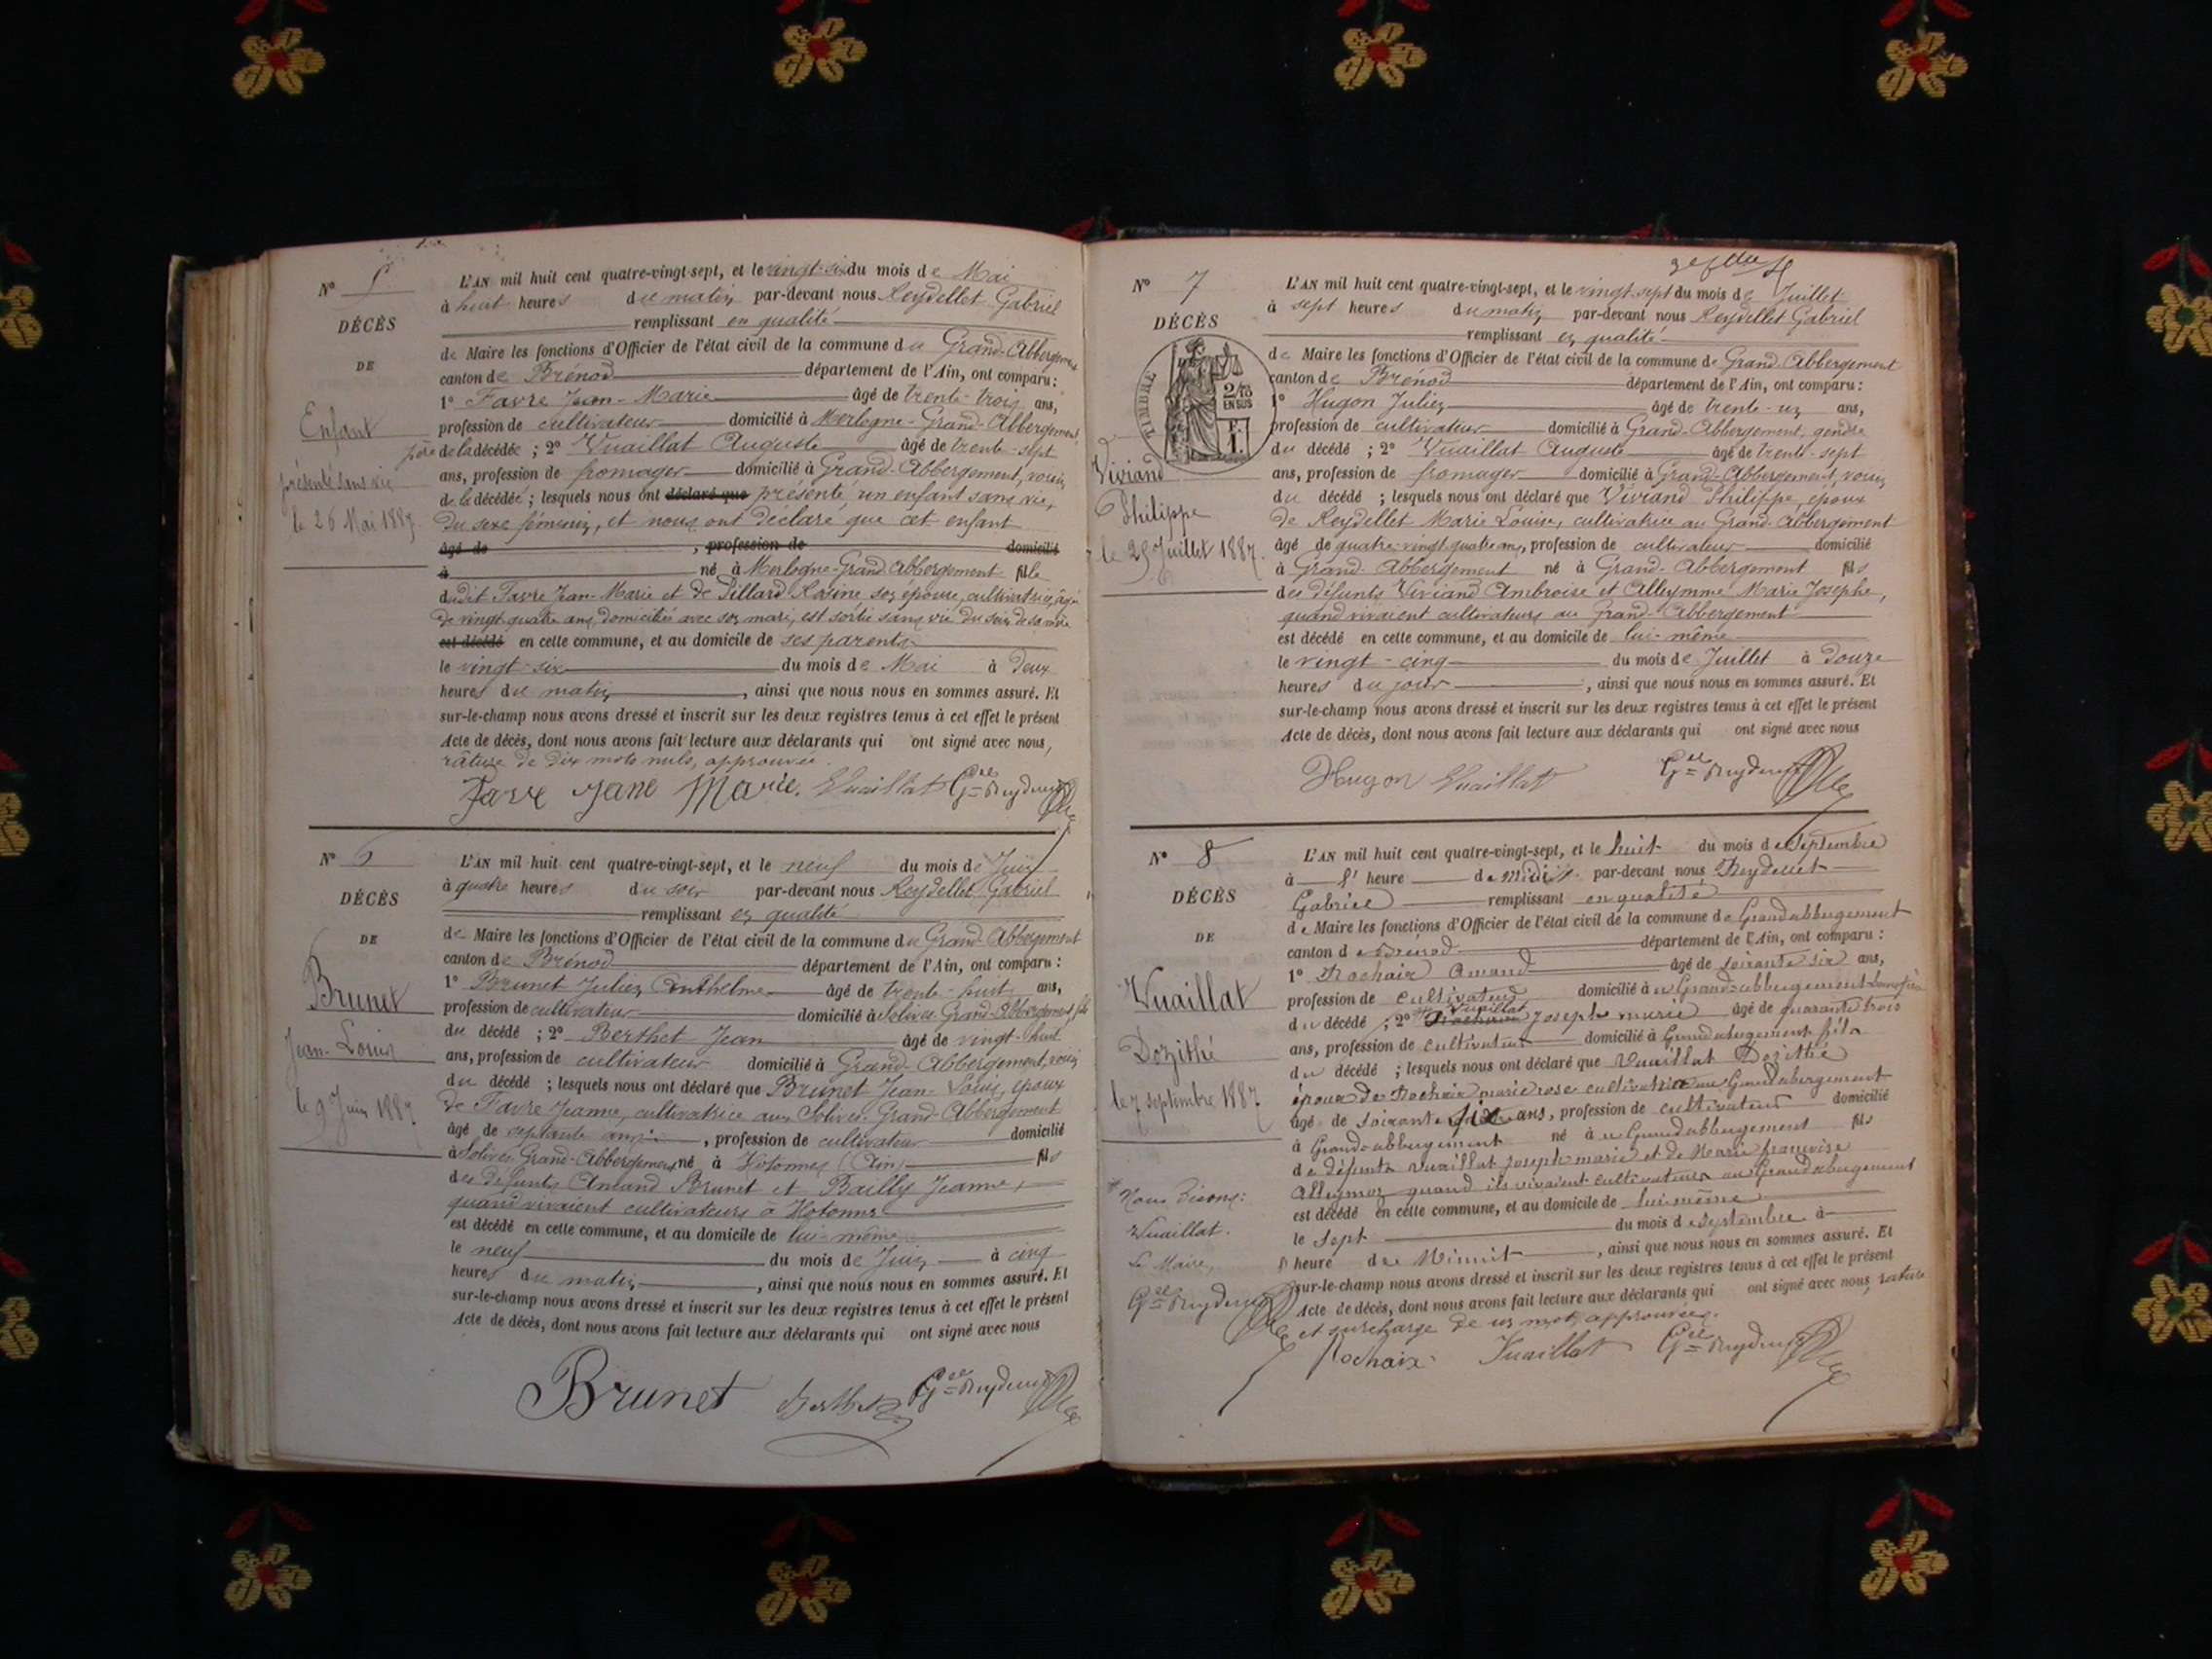 N° 5
DÉCÈS
DE
Enfant
présenté sans vie
le 26 Mai 1887
L'AN mil huit cent quatre-vingt-sept, et le vingt-six du mois de Mai
à huit heures du matin par-devant nous Reydellet Gabriel
remplissant en qualité
de Maire les fonctions d'Officier de l'état civil de la commune du Grand-Abbergement
canton de Brénod département de l'Ain, ont comparu :
1° Favre Jean-Marie âgé de trente-trois ans,
profession de cultivateur domicilié à Merlogne-Grand-Abbergement,
père de la décédée ; 2° Vuaillat Auguste âgé de trente-sept
ans, profession de fromager domicilié à Grand-Abbergement, voisin
de la décédée ; lesquels nous ont déclaré que présenté un enfant sans vie,
du sexe féminin, et nous ont déclaré que cet enfant
âgé de , profession de domicilié
à né à Merlogne-Grand-Abbergement fille
dudit Favre Jean-Marie et de Pillard Rosine son épouse, cultivatrice, âgée
de vingt quatre ans, domiciliée avec son mari, est sortie sans vie du sein de sa mère
est décédé en cette commune, et au domicile de ses parents
le vingt-six du mois de Mai à deux
heures du matin , ainsi que nous nous en sommes assuré. Et
sur-le-champ nous avons dressé et inscrit sur les deux registres tenus à cet effet le présent
Acte de décès, dont nous avons fait lecture aux déclarants qui ont signé avec nous,
râture de dix mots nuls, approuvée.
Favre Jane Marie. Vuaillat
N° 6
DÉCÈS
DE
Brunet
Jean-Louis
le 9 Juin 1887
L'AN mil huit cent quatre-vingt-sept, et le neuf du mois de Juin
à quatre heures du soir par-devant nous Reydellet Gabriel
remplissant en qualité
de Maire les fonctions d'Officier de l'état civil de la commune du Grand-Abbergement
canton de Brénod département de l'Ain, ont comparu :
1° Brunet Julien Anthelme âgé de trente-huit ans,
profession de cultivateur domicilié à Solives Grand-Abbergement, fils
du décédé ; 2° Berthet Jean âgé de vingt-huit
ans, profession de cultivateur domicilié à Grand-Abbergement, voisin
du décédé ; lesquels nous ont déclaré que Brunet Jean-Louis, époux
de Favre Jeanne, cultivatrice aux Solives Grand-Abbergement
âgé de septante ans , profession de cultivateur domicilié
à Solives Grand-Abbergement né à Hotonnes (Ain) fils
des défunts Amand Brunet et Bailly Jeanne,
quand vivaient cultivateurs à Hotonnes
est décédé en cette commune, et au domicile de lui-même
le neuf du mois de Juin à cinq
heures du matin , ainsi que nous nous en sommes assuré. Et
sur-le-champ nous avons dressé et inscrit sur les deux registres tenus à cet effet le présent
Acte de décès, dont nous avons fait lecture aux déclarants qui ont signé avec nous
Brunet Berthet
N° 7
DÉCÈS
TIMBRE
2/10 EN SUS
F. 1.
Viviand
Philippe
le 25 Juillet 1887.
L'AN mil huit cent quatre-vingt-sept, et le vingt-sept du mois de Juillet
à sept heures du matin par-devant nous Reydellet Gabriel
remplissant en qualité
de Maire les fonctions d'Officier de l'état civil de la commune de Grand-Abbergement
canton de Brénod département de l'Ain, ont comparu :
1° Hugon Julien âgé de trente-un ans,
profession de cultivateur domicilié à Grand-Abbergement, gendre
du décédé ; 2° Vuaillat Auguste âgé de trente-sept
ans, profession de fromager domicilié à Grand-Abbergement, voisin
du décédé ; lesquels nous ont déclaré que Viviand Philippe, époux
de Reydellet Marie Louise, cultivatrice au Grand-Abbergement
âgé de quatre-vingt-quatre ans, profession de cultivateur domicilié
à Grand-Abbergement né à Grand-Abbergement fils
des défunts Viviand Ambroise et Alleymme Marie Josephe,
quand vivaient cultivateurs au Grand-Abbergement
est décédé en cette commune, et au domicile de lui-même
le vingt-cinq du mois de Juillet à douze
heures du jour , ainsi que nous nous en sommes assuré. Et
sur-le-champ nous avons dressé et inscrit sur les deux registres tenus à cet effet le présent
Acte de décès, dont nous avons fait lecture aux déclarants qui ont signé avec nous
Hugon Vuaillat
N° 8
DÉCÈS
DE
Vuaillat
Dozithé
le 7 septembre 1887
Nous disons :
Vuaillat.
Le Maire,
L'AN mil huit cent quatre-vingt-sept, et le huit du mois de Septembre
à heure de Midi par-devant nous Reydellet
Gabriel remplissant en qualité
de Maire les fonctions d'Officier de l'état civil de la commune de Grand abbergement
canton de Brénod département de l'Ain, ont comparu :
1° Rochaix Amand âgé de soixante six ans,
profession de cultivateur domicilié à Grand-abbergement beau frère
du décédé ; 2° Vuaillat Joseph marie âgé de quarante trois
ans, profession de cultivateur domicilié à Grand abergement fils
du décédé ; lesquels nous ont déclaré que Vuaillat Dozithée
époux de Rochaix marie rose cultivatrice au Grand abergement
âgé de soixante six ans, profession de cultivateur domicilié
à Grand-abbergement né à Grand abbergement fils
de défunts Vuaillat joseph marie et de Marie françoise
Alleymoz quand ils vivaient cultivateurs au Grand abergement
est décédé en cette commune, et au domicile de lui même
le sept du mois de septembre à
heure de Minuit , ainsi que nous nous en sommes assuré. Et
sur-le-champ nous avons dressé et inscrit sur les deux registres tenus à cet effet le présent
Acte de décès, dont nous avons fait lecture aux déclarants qui ont signé avec nous, rature
et surcharge de un mot, approuvées.
Rochaix Vuaillat